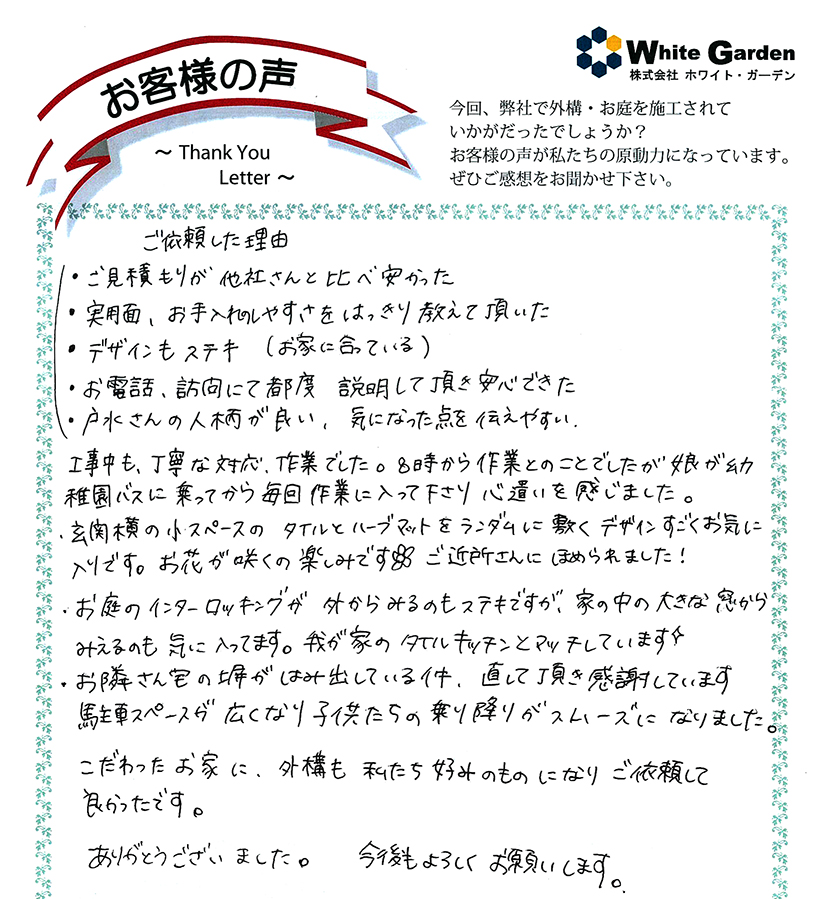 お客様の声
～ Thank You
Letter ～
White Garden
株式会社 ホワイト・ガーデン
今回、弊社で外構・お庭を施工されて
いかがだったでしょうか？
お客様の声が私たちの原動力になっています。
ぜひご感想をお聞かせ下さい。
ご依頼した理由
・ご見積もりが他社さんと比べ安かった
・実用面、お手入れのしやすさをはっきり教えて頂いた
・デザインもステキ （お家に合っている）
・お電話、訪問にて都度 説明して頂き安心できた
・戸水さんの人柄が良い、気になった点を伝えやすい.
工事中も、丁寧な対応、作業でした。8時から作業とのことでしたが娘が幼
稚園バスに乗ってから毎回作業に入って下さり心遣いを感じました。
・玄関横の小スペースの タイルとハーブマットをランダムに敷くデザインすごくお気に
入りです。お花が咲くの楽しみです ご近所さんにほめられました！
・お庭のインターロッキングが 外からみるのもステキですが、家の中の大きな窓から
みえるのも気に入ってます。我が家のタイルキッチンとマッチしています
・お隣さん宅の塀がはみ出している件、直して頂き感謝しています
駐車スペースが広くなり子供たちの乗り降りがスムーズになりました。
こだわったお家に、外構も私たち好みのものになりご依頼して
良かったです。
ありがとうございました。 今後もよろしくお願いします。